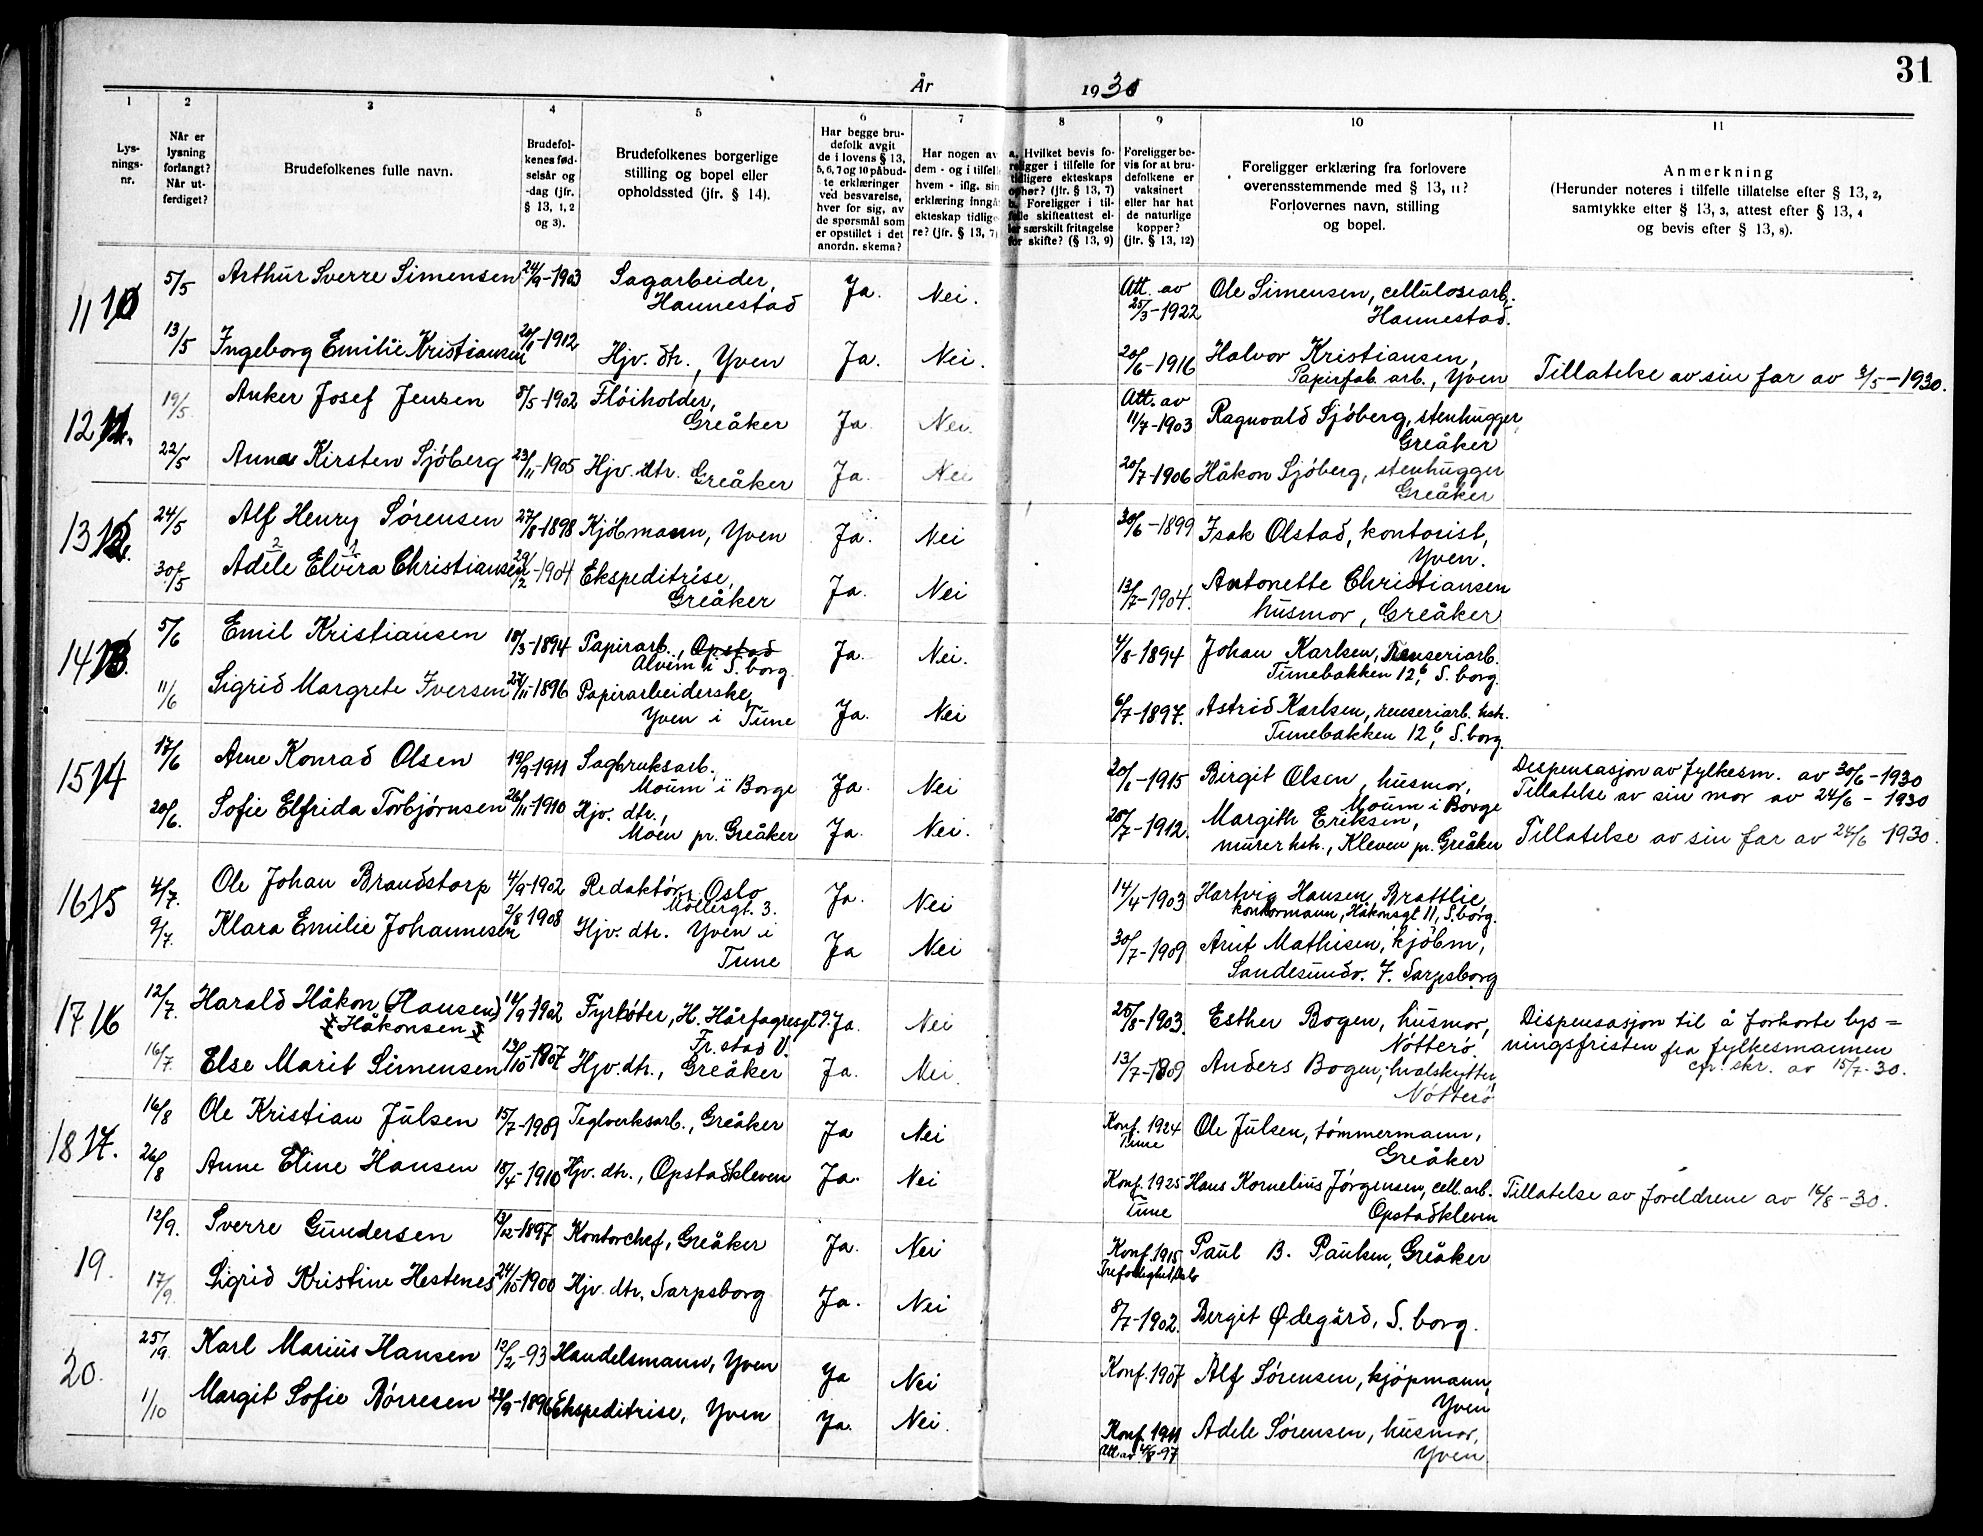 31
År 1930
1 2 3 4 5 6 7 8 9 10 11
Lys-
nings-
nr.
Når er
lysning
forlangt?
Når ut-
ferdiget?
Brudefolkenes fulle navn.
Brudefol-
kenes fød-
selsår og
-dag (jfr.
§ 13, 1, 2
og 3).
Brudefolkenes borgerlige
stilling og bopel eller
opholdssted (jfr. § 14).
Har begge bru-
defolk avgit
de i lovens § 13,
5, 6, 7 og 10 påbud-
te erklæringer
ved besvarelse,
hver for sig, av
de spørsmål som
er opstillet i det
anordn. skema?
Har nogen av
dem - og i tilfelle
hvem - iflg. sin
erklæring inngå
ekteskap tidlige-
re? (jfr. § 13, 7)
a. Hvilket bevis fo-
religger i tilfelle for
tidligere ekteskaps
ophør? (jfr. § 13, 7)
b. Foreligger i til-
felle skifteattest el-
ler særskilt fritagelse
for skifte? (§ 13, 9)
Foreligger be-
vis for at bru-
defolkene er
vaksinert
eller har hat
de naturlige
kopper?
(jfr. § 13, 12)
Foreligger erklæring fra forlovere
overensstemmende med § 13, 11?
Forlovernes navn, stilling
og bopel.
Anmerkning
(Herunder noteres i tilfelle tillatelse efter § 13, 2,
samtykke efter § 13, 3, attest efter § 13, 4
og bevis efter § 13, 8).
11 10 5/5 Arthur Sverre Simensen 24/9-1903 Sagarbeider, Ja. Nei. Att. av Ole Simensen, cellulosearb.
Hannestad 25/3-1922 Hannestad.
13/5 Ingeborg Emilie Kristiansen 20/1-1912 Hjv. dtr., Yven Ja. Nei. 20/6-1916 Halvor Kristiansen,
Papirfab. arb., Yven Tillatelse av sin far av 3/5-1930.
12 11. 19/5. Anker Josef Jensen 8/5-1902 Fløiholder, Att. av
Greåker Ja. Nei. 11/7-1903 Ragnvald Sjøberg, stenhugger,
Greåker
22/5 Anna Kirsten Sjøberg 23/11-1905 Hjv. dtr. Greåker Ja. Nei 20/7-1906 Håkon Sjöberg, stenhugger
Greåker
13 12. 24/5 Alf Henry Sørensen 27/8-1898 Kjöbmann, Yven Ja. Nei 30/6-1899 Isak Olstad, kontorist,
Yven.
2 1
30/5 Adele Elvira Christiansen 29/2-1904 Ekspeditrise, Ja. Nei 13/7-1904. Antonette Christiansen
Greåker husmor, Greåker
14 13. 5/6 Emil Kristiansen 18/3-1894 Papirarb., Opstad Ja. Nei. 4/8-1894 Johan Karlsen, Renseriarb.
Alvim i S. borg Tunebakken 12b, S. borg.
11/6 Sigrid Margrete Iversen 27/11-1896 Papirarbeiderske, Ja. Nei 6/7-1897. Astrid Karlsen, renseriarb. hstr.
Yven i Tune Tunebakken 12b, S. borg.
15 14 17/6 Arne Konrad Olsen 19/9-1911 Sagbruksarb., Ja. Nei 20/6-1915 Birgit Olsen, husmor, Dispensasjon av fylkesm. av 30/6-1930
Moum i Borge Moum i Borge Tillatelse av sin mor av 24/6-1930
20/6. Sofie Elfrida Torbjørnsen 26/11-1910 Hjv. dtr., Ja. Nei. 28/7-1912. Margith Eriksen,
Moen pr. Greåker murer hstr., Kleven pr. Greåker Tillatelse av sin far av 24/6 1930.
16 15 4/7. Ole Johan Brandstorp 4/9-1902 Redaktør, Oslo Ja. Nei 14/4-1903 Hartvig Hansen Brattlie,
Möllergt. 3. kontormann, Håkonsgt 11, S. borg.
9/7. Klara Emilie Johannesen 2/8 1908 Hjv. dtr. Yven i Ja Nei 30/7-1909 Arnt Mathisen, kjöbm,
Tune Sandesundv. 7. Sarpsborg
17 16 12/7. Harald Håkon (Hansen) 12/9-1902 Fyrbøter, H. Hårfagresgt 9. Ja. Nei 28/8-1903. Esther Bogen, husmor, Dispensasjon til å forkorte lys=
Håkonsen Fr. stad V. Nötterö. ningsfristen fra fylkesmannen
16/7. Else Marit Simensen 13/10-1907 Hjv. dtr., Greåker Ja. Nei. 13/7-1909 Anders Bogen, hvalskytter, cfr. skr. av 15/7-30.
Nötterö
18 17. 16/8 Ole Kristian Julsen 15/7-1909 Teglverksarb., Greåker Ja Nei Konf. 1924 Ole Julsen, tømmermann,
Tune Greåker
26/8 Anne Eline Hansen 18/4-1910 Hjv. dtr., Opstadkleven Ja. Nei Konf. 1925 Hans Kornelius Jørgensen, cell. arb. Tillatelse av foreldrene av 16/8-30.
Tune Opstadkleven
19. 12/9. Sverre Gundersen 13/12-1897 Kontorchef, Greåker Ja. Nei Konf. 1915 Paul B. Paulsen, Greåker
Trefoldighet, Oslo
17/9. Sigrid Kristine Hestenes 24/10-1900 Hjv. dtr, Sarpsborg Ja. Nei 8/7-1902. Bergit Ødegård, S. borg.
20. 25/9. Karl Marius Hansen 12/2-93 Handelsmann, Yven Ja Nei Konf. 1907 Alf Sørensen, kjöpmann,
Yven
1/10 Margit Sofie Børresen 23/9-1896 Ekspeditrise, Yven Ja. Nei. Konf. 1911 Adele Sørensen, husmor,
Yven